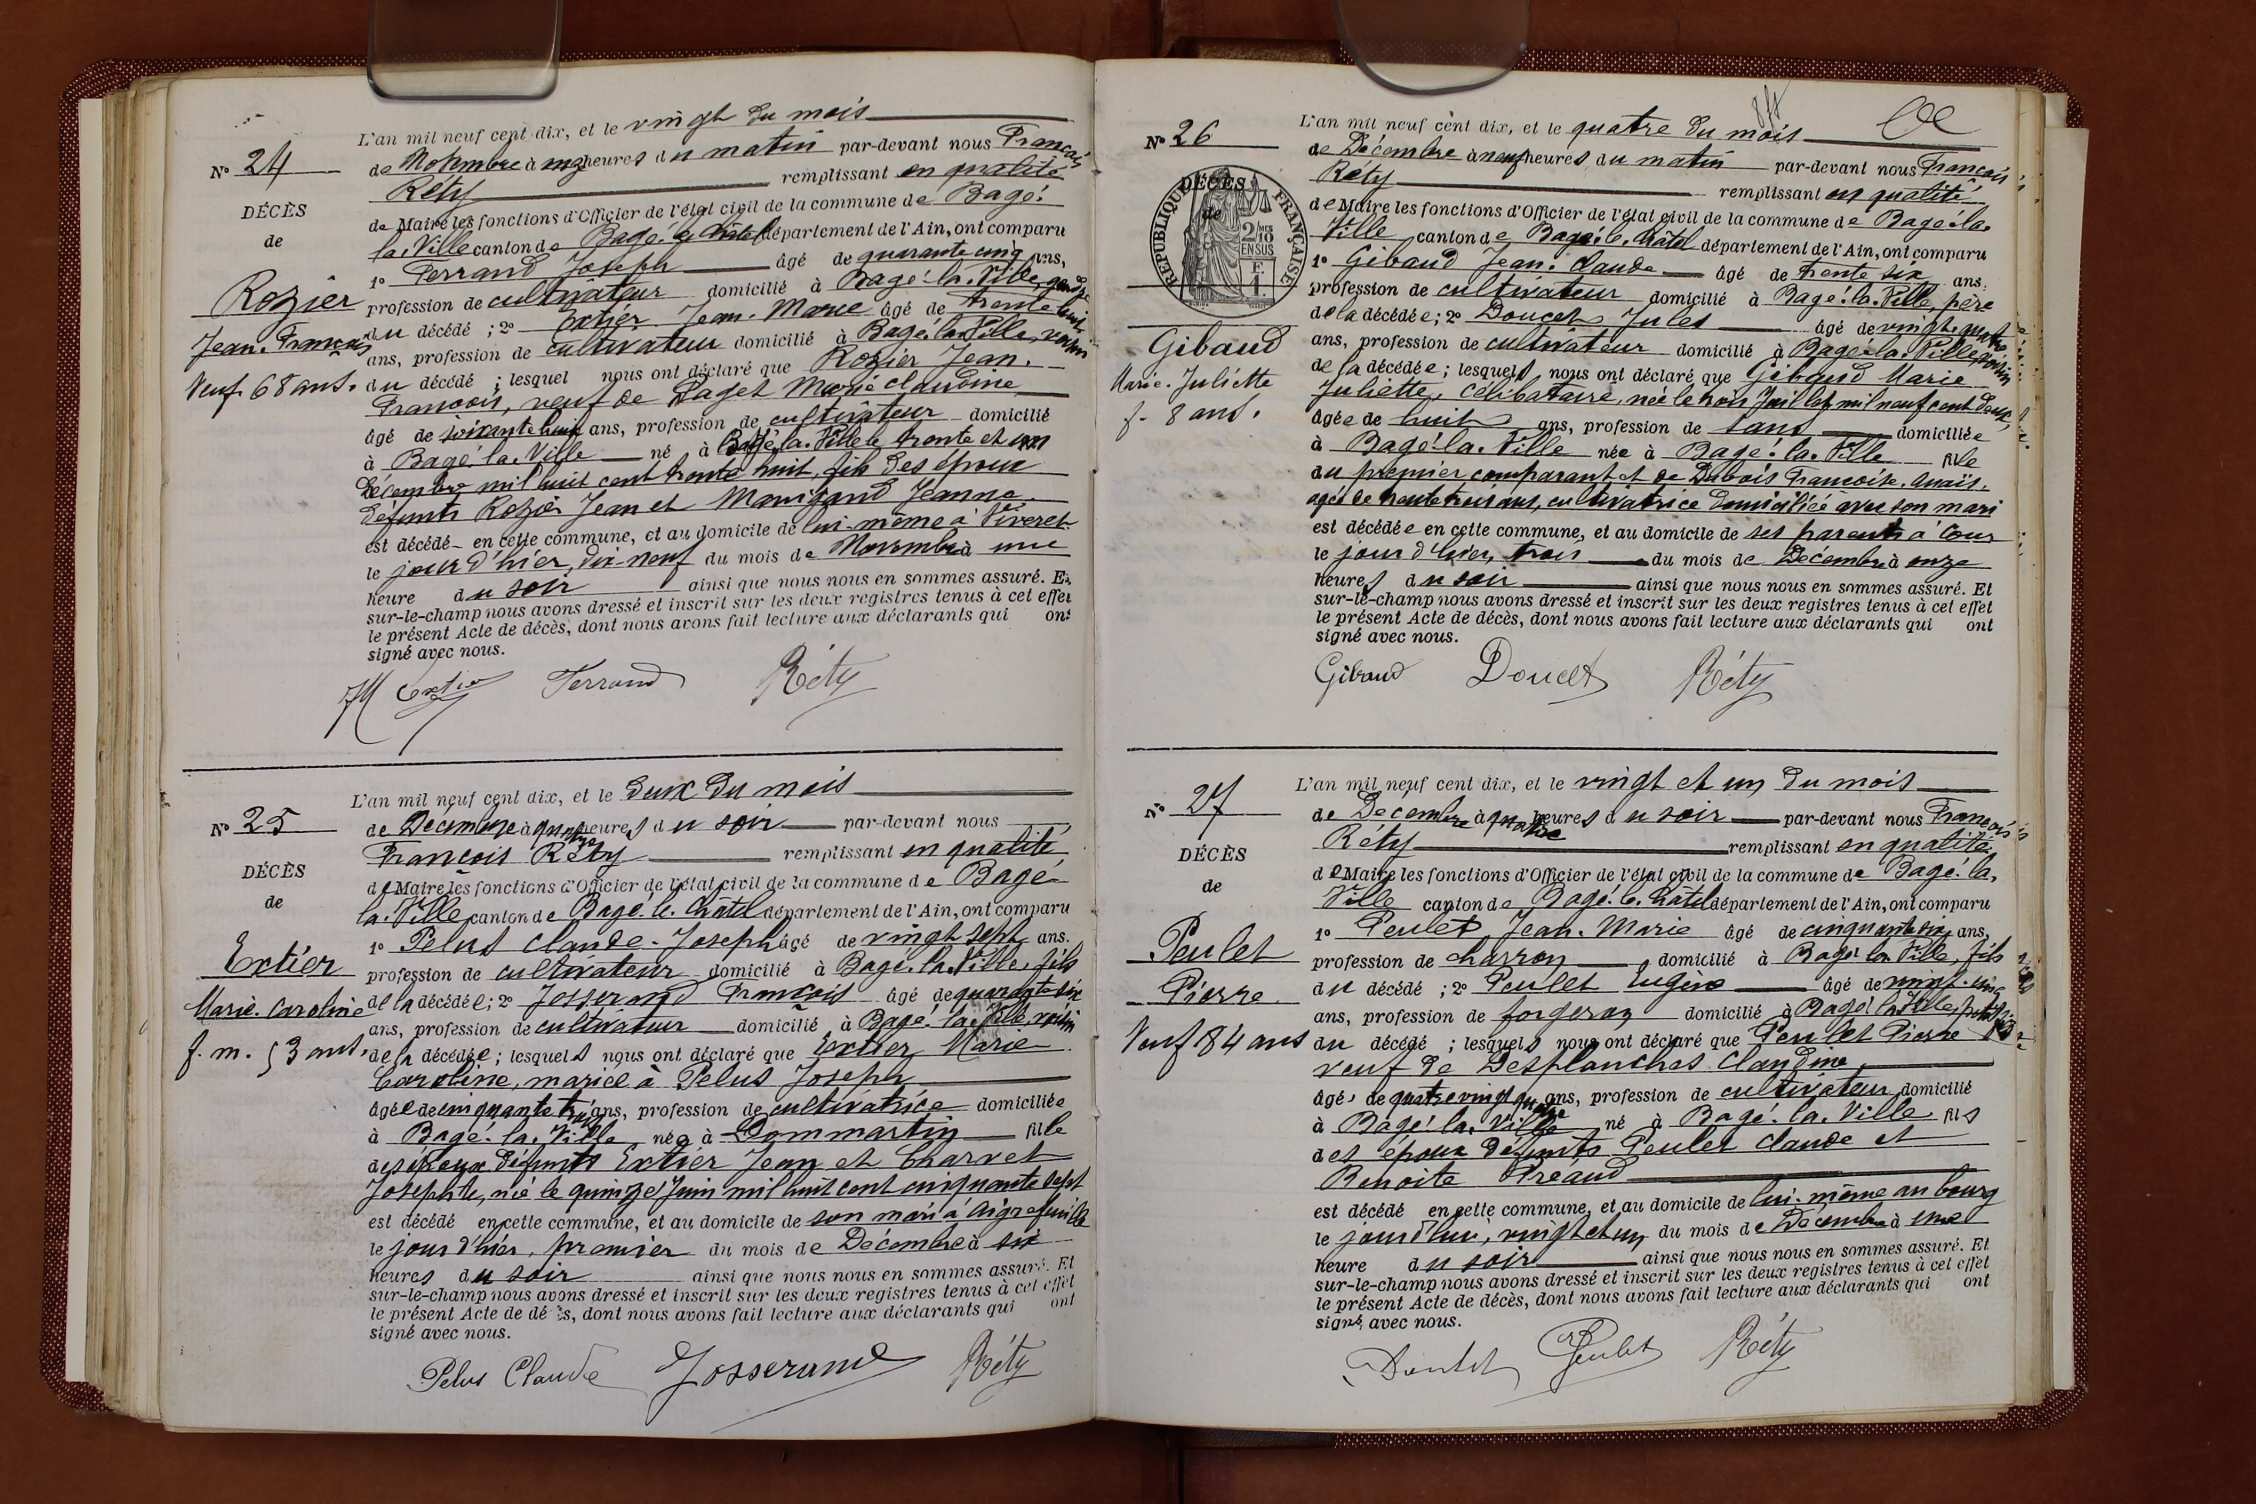 N° 24
DÉCÈS
de
Rozier
Jean-François
Veuf 68 ans.
L'an mil neuf cent dix, et le vingt du mois
de Novembre à onze heures du matin par-devant nous François
Réty remplissant en qualité
de Maire les fonctions d'Officier de l'état civil de la commune de Bagé-
la-Ville canton de Bagé-le-Châtel département de l'Ain, ont comparu
1° Ferrand Joseph âgé de quarante cinq ans,
profession de cultivateur domicilié à Bagé-la-Ville, gendre
du décédé ; 2° Extier Jean-Marie âgé de trente huit
ans, profession de cultivateur domicilié à Bagé-la-Ville, voisin
du décédé ; lesquel nous ont déclaré que Rozier Jean-
François, veuf de Paget Marie Claudine
âgé de soixante huit ans, profession de cultivateur domicilié
à Bagé-la-Ville né à Bagé-la-Ville le trente et un
Décembre mil huit cent trente huit, fils des époux
défunts Rozier Jean et Jeanne
est décédé en cette commune, et au domicile de lui-même à Viveret
le jour d'hier, dix-neuf du mois de Novembre à une
heure du soir ainsi que nous nous en sommes assuré. Et
sur-le-champ nous avons dressé et inscrit sur les deux registres tenus à cet effet
le présent Acte de décès, dont nous avons fait lecture aux déclarants qui ont
signé avec nous.
JM Extier Ferrand Réty
N° 25
DÉCÈS
de
Extier
Marie-Caroline
f. m. 53 ans.
L'an mil neuf cent dix, et le deux du mois
de Décembre à quatre heures du soir par-devant nous
François Réty remplissant en qualité
de Maire les fonctions d'Officier de l'état civil de la commune de Bagé-
la-Ville canton de Bagé-le-Châtel département de l'Ain, ont comparu
1° Pelus Claude-Joseph âgé de vingt sept ans.
profession de cultivateur domicilié à Bagé-la-Ville, fils
de la décédée ; 2° Josserand François âgé de quarante six
ans, profession de cultivateur domicilié à Bagé-la-Ville, voisin
de la décédée ; lesquels nous ont déclaré que Extier Marie
Caroline, mariée à Pelus Joseph
âgée de cinquante trois ans, profession de cultivatrice domiciliée
à Bagé-la-Ville née à Dommartin fille
des époux défunts Extier Jean et Charvet
Josephte, née le quinze Juin mil huit cent cinquante sept
est décédé en cette commune, et au domicile de son mari à Aigrefeuille
le jour d'hier, premier du mois de Décembre à six
heures du soir ainsi que nous nous en sommes assuré. Et
sur-le-champ nous avons dressé et inscrit sur les deux registres tenus à cet effet
le présent Acte de décès, dont nous avons fait lecture aux déclarants qui ont
signé avec nous.
Pelus Claude Josserand Réty
N° 26
DÉCÈS
de
RÉPUBLIQUE FRANÇAISE
2/10 MES
EN SUS
Gibaud
Marie-Juliette
f. 8 ans.
L'an mil neuf cent dix, et le quatre du mois
de Décembre à neuf heures du matin par-devant nous François
Réty remplissant en qualité
de Maire les fonctions d'Officier de l'état civil de la commune de Bagé-la-
Ville canton de Bagé-le-Châtel département de l'Ain, ont comparu
1° Gibaud Jean-Claude âgé de trente six ans,
profession de cultivateur domicilié à Bagé-la-Ville père
de la décédée ; 2° Doucet Jules âgé de vingt-quatre
ans, profession de cultivateur domicilié à Bagé-la-Ville, voisin
de la décédée ; lesquels nous ont déclaré que Gibaud Marie
Juliette, célibataire, née le trois Juillet mil neuf cent deux,
âgée de huit ans, profession de sans domiciliée
à Bagé-la-Ville née à Bagé-la-Ville fille
du premier comparant et de Dubois Françoise-Anaïs,
agée de trente trois ans, cultivatrice domiciliée avec son mari
est décédée en cette commune, et au domicile de ses parents à Cour
le jour d'hier, trois du mois de Décembre à onze
heures du soir ainsi que nous nous en sommes assuré. Et
sur-le-champ nous avons dressé et inscrit sur les deux registres tenus à cet effet
le présent Acte de décès, dont nous avons fait lecture aux déclarants qui ont
signé avec nous.
Gibaud Doucet Réty
N° 27
DÉCÈS
de
Peulet
Pierre
Veuf 84 ans
L'an mil neuf cent dix, et le vingt et un du mois
de Décembre à quatre heures du soir par-devant nous François
Réty remplissant en qualité
de Maire les fonctions d'Officier de l'état civil de la commune de Bagé-la-
Ville canton de Bagé-le-Châtel département de l'Ain, ont comparu
1° Peulet Jean-Marie âgé de cinquante six ans,
profession de charron domicilié à Bagé-la-Ville, fils
du décédé ; 2° Peulet Eugène âgé de vingt-cinq
ans, profession de forgeron domicilié à Bagé-la-Ville, petit fils
du décédé ; lesquels nous ont déclaré que Peulet Pierre
veuf de Desplanches Claudine
âgé de quatre vingt quatre ans, profession de cultivateur domicilié
à Bagé-la-Ville né à Bagé-la-Ville fils
des époux défunts Peulet Claude et
Benoite Préaud
est décédé en cette commune, et au domicile de lui-même au bourg
le jour d'hui, vingt et un du mois de Décembre à une
heure du soir ainsi que nous nous en sommes assuré. Et
sur-le-champ nous avons dressé et inscrit sur les deux registres tenus à cet effet
le présent Acte de décès, dont nous avons fait lecture aux déclarants qui ont
signé avec nous.
Peulet Réty